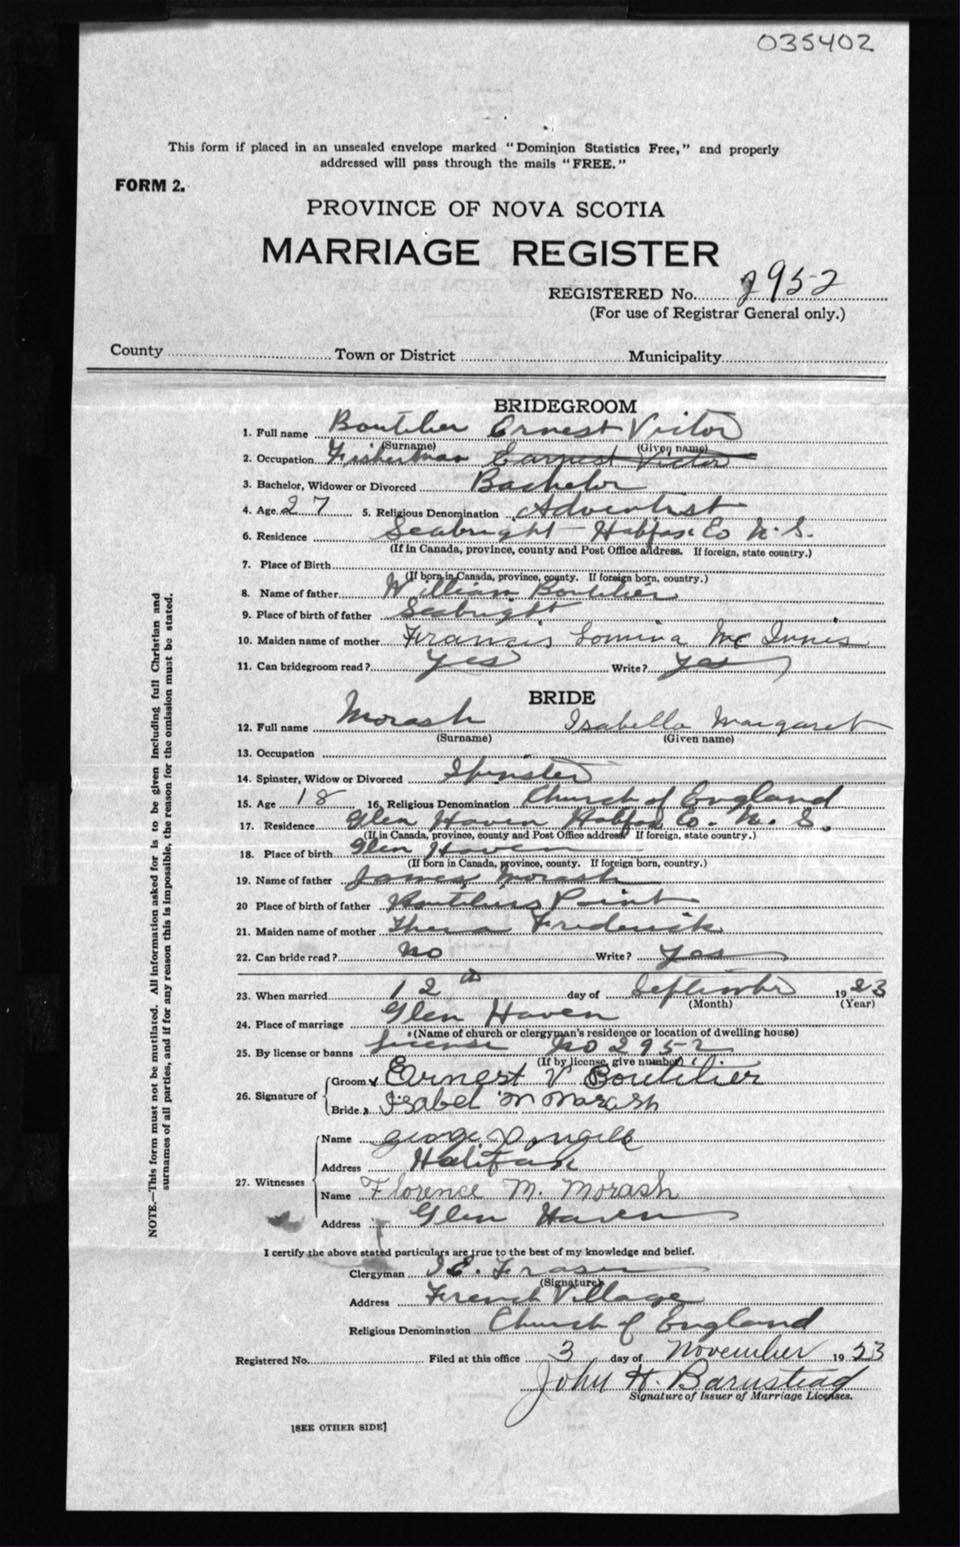 035402
This form if placed in an unsealed envelope marked "Dominion Statistics Free," and properly
addressed will pass through the mails "FREE."
FORM 2.
PROVINCE OF NOVA SCOTIA
MARRIAGE REGISTER
REGISTERED No. 2952
(For use of Registrar General only.)
County Town or District Municipality
BRIDEGROOM
1. Full name Boutilier Ernest Victor
(Surname) (Given name)
2. Occupation Fisherman Earnest Victor
3. Bachelor, Widower or Divorced Bachelor
4. Age 27 5. Religious Denomination Adventist
6. Residence Seabright Halifax Co N.S.
(If in Canada, province, county and Post Office address. If foreign, state country.)
7. Place of Birth
(If born in Canada, province, county. If foreign born, country.)
8. Name of father William Boutilier
9. Place of birth of father Seabright
10. Maiden name of mother Francis Lomina Mc Innis
11. Can bridegroom read? Yes Write? Yes
BRIDE
12. Full name Morash Isabella Margaret
(Surname) (Given name)
13. Occupation
14. Spinster, Widow or Divorced Spinster
15. Age 18 16. Religious Denomination Church of England
17. Residence Glen Haven Halifax Co. N. S.
(If in Canada, province, county and Post Office address. If foreign, state country.)
18. Place of birth Glen Haven
(If born in Canada, province, county. If foreign born, country.)
19. Name of father James Morash
20 Place of birth of father Boutiliers Point
21. Maiden name of mother Frederick
22. Can bride read? No Write? Yes
23. When married 12th day of September 1923
(Month) (Year)
24. Place of marriage Glen Haven
(Name of church or clergyman's residence or location of dwelling house)
25. By license or banns License No 2952
(If by license, give number)
26. Signature of Groom Ernest V Boutilier
Bride Isabel M Morash
27. Witnesses Name George
Address Halifax
Name Florence M. Morash
Address Glen Haven
I certify the above stated particulars are true to the best of my knowledge and belief.
Clergyman I.E. Fraser
(Signature)
Address French Village
Religious Denomination Church of England
Registered No. Filed at this office 3 day of November 1923
John H. Barnstead
Signature of Issuer of Marriage Licenses.
[SEE OTHER SIDE]
NOTE.—This form must not be mutilated. All information asked for is to be given including full Christian and
surnames of all parties, and if for any reason this is impossible, the reason for the omission must be stated.